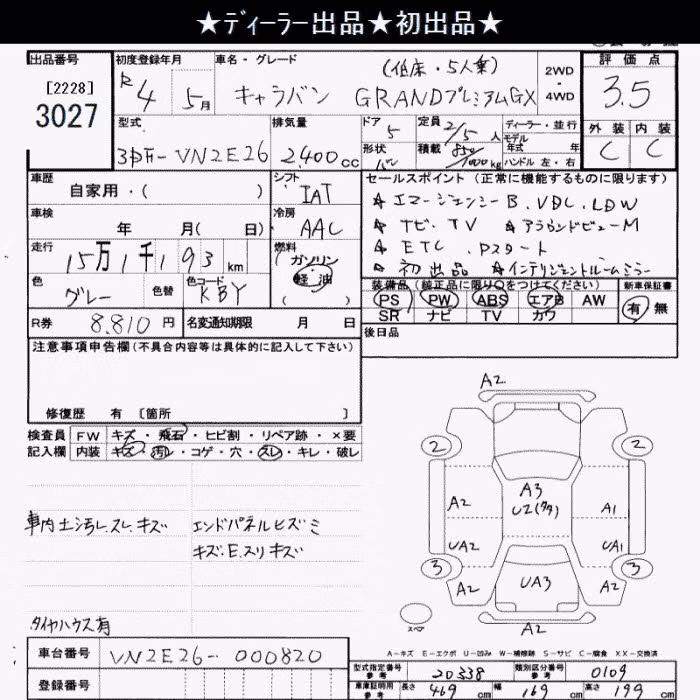 ★ディーラー出品★初出品★
出品番号 初度登録年月 車名・グレード 評価点
[2228] 3027
R4 5月 キャラバン (低床・5人乗) GRANDプレミアムGX 2WD・4WD 3.5
型式 排気量 ドア 5 定員 2/5人 ディーラー・並行 外装 内装
3DF-VN2E26 2,400cc 形状 バン 積載 850/1000kg モデル年式 年式 ハンドル 左・右 C C
車歴 自家用・( ) シフト IAT セールスポイント (正常に機能するものに限ります)
車検 年 月( 日) 冷房 AAC
☆エマージェンシーB.VDC.LDW
☆ナビ.TV ☆アラウンドビューM
☆ETC.Pスタート
☆初出品 ☆インテリジェントルームミラー
走行 15万1千193km 燃料 ガソリン 軽油 ( )
色 グレー 色替 色コード KBY
装備品 (純正品に限り○をつけてください) 新車保証書
PS PW ABS エアB AW 有 無
SR ナビ TV カワ
R券 8,810円 名変通知期限 月 日
後日品
注意事項申告欄(不具合内容等は具体的に記入して下さい)
修復歴 有 [箇所 ]
検査員 FW キズ・飛石・ヒビ割・リペア跡・×要
記入欄 内装 キズ・汚レ・コゲ・穴・スレ・キレ・破レ
車内土シ汚レ.スレ.キズ エンドパネルヒズミ
キズ.E.スリキズ
A2
2 2
A2 A3 A1
U2(タタ)
UA2 UA1
3 3
A2 UA3 A2
スペア A2
タイヤハウス有
A-キズ E-エクボ U-凹み W-補修跡 S-サビ C-腐食 XX-交換済
車台番号 VN2E26-000820
登録番号
型式指定番号 参考 20338 類別区分番号 参考 0109
車庫証明用 参考 長さ 469cm 幅 169cm 高さ 199cm